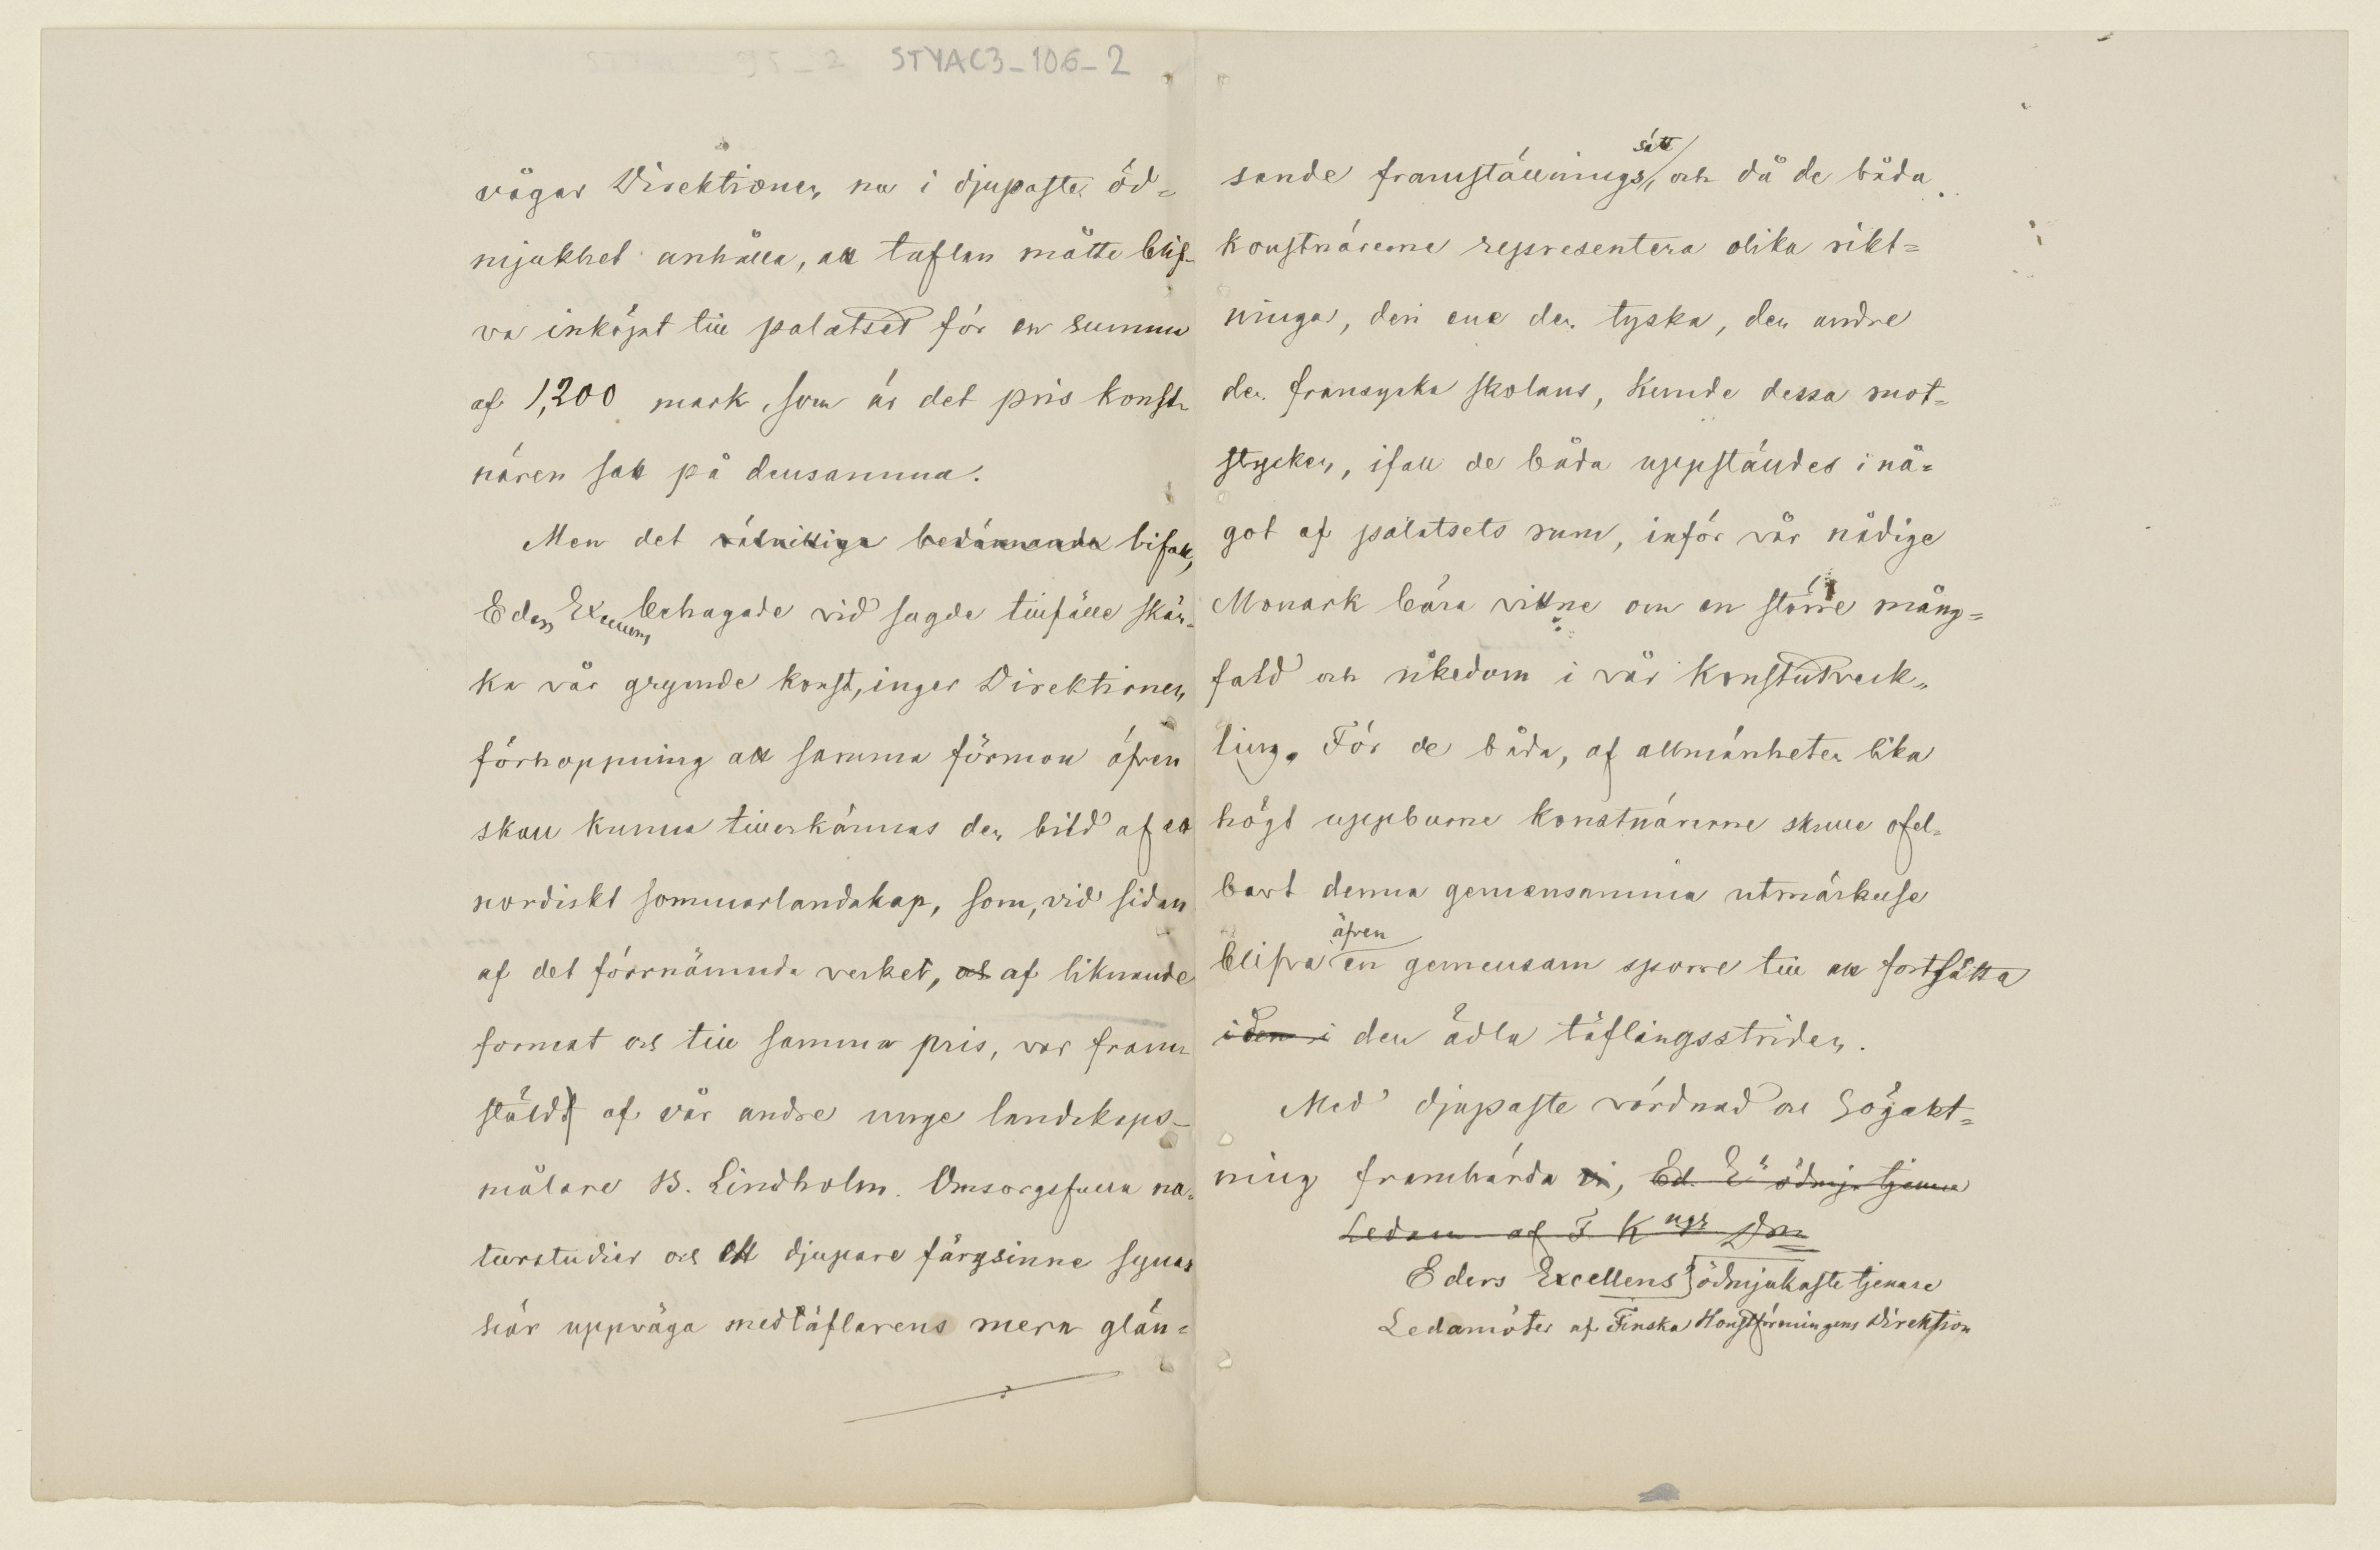 STYAC3_106_2
vågar Direktionen nu i djupaste öd=
mjukhet anhålla, att taflan måtte blif-
va inköpt till palatset för en summa
af 1,200 mark, som är det pris konst-
nären satt på densamma.
Men det välvilliga bedömmande bifall,
Eders Excellens behagade vid sagde tillfälle skän-
ka vår gryende konst, inger Direktionen
förhoppning att samma förmon äfven
skall kunna tillerkännas den bild af ett
nordiskt sommarlandskap, som, vid sidan
af det förrnämnda verket, och af liknande
format och till samma pris, var fram-
stäldt af vår andre unge landskaps-
målare B. Lindholm. Omsorgsfulla na-
turstudier och ett djupare färgsinne synas
här uppväga medtäflarens mera glän=
sätt
sande framställnings, och då de båda
konstnärerne representera olika rikt=
ningar, den ene den tyska, den andre
den fransyska skolans, kunde dessa mot-
stycken, ifall de båda uppställdes i nå=
got af palatsets rum, inför vår nådige
Monark bära vittne om en större mång=
fald och rikedom i vår konstutveck-
ling. För de båda, af allmänheten lika
högt uppburne konstnärerne skulle ofel-
bart denna gemensamma utmärkelse
äfven
blifva en gemensam sporre till att fortsätta
i den i den ädla täflingsstriden.
Med djupaste vördnad och högakt=
ning framhärda vi, Ed. E ödmj. tjenare
Ledam af F. Kngs Dn
Eders Excellens' ödmjukaste tjenare
Ledamöter af Finska Konstföreningens Direktion